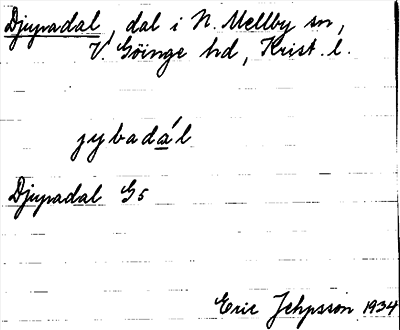 Djupadal, dal i N. Mellby sn,
V. Göinge hd, Krist. l.
jybadál
Djupadal Gs
Eric Jehpsson 1934